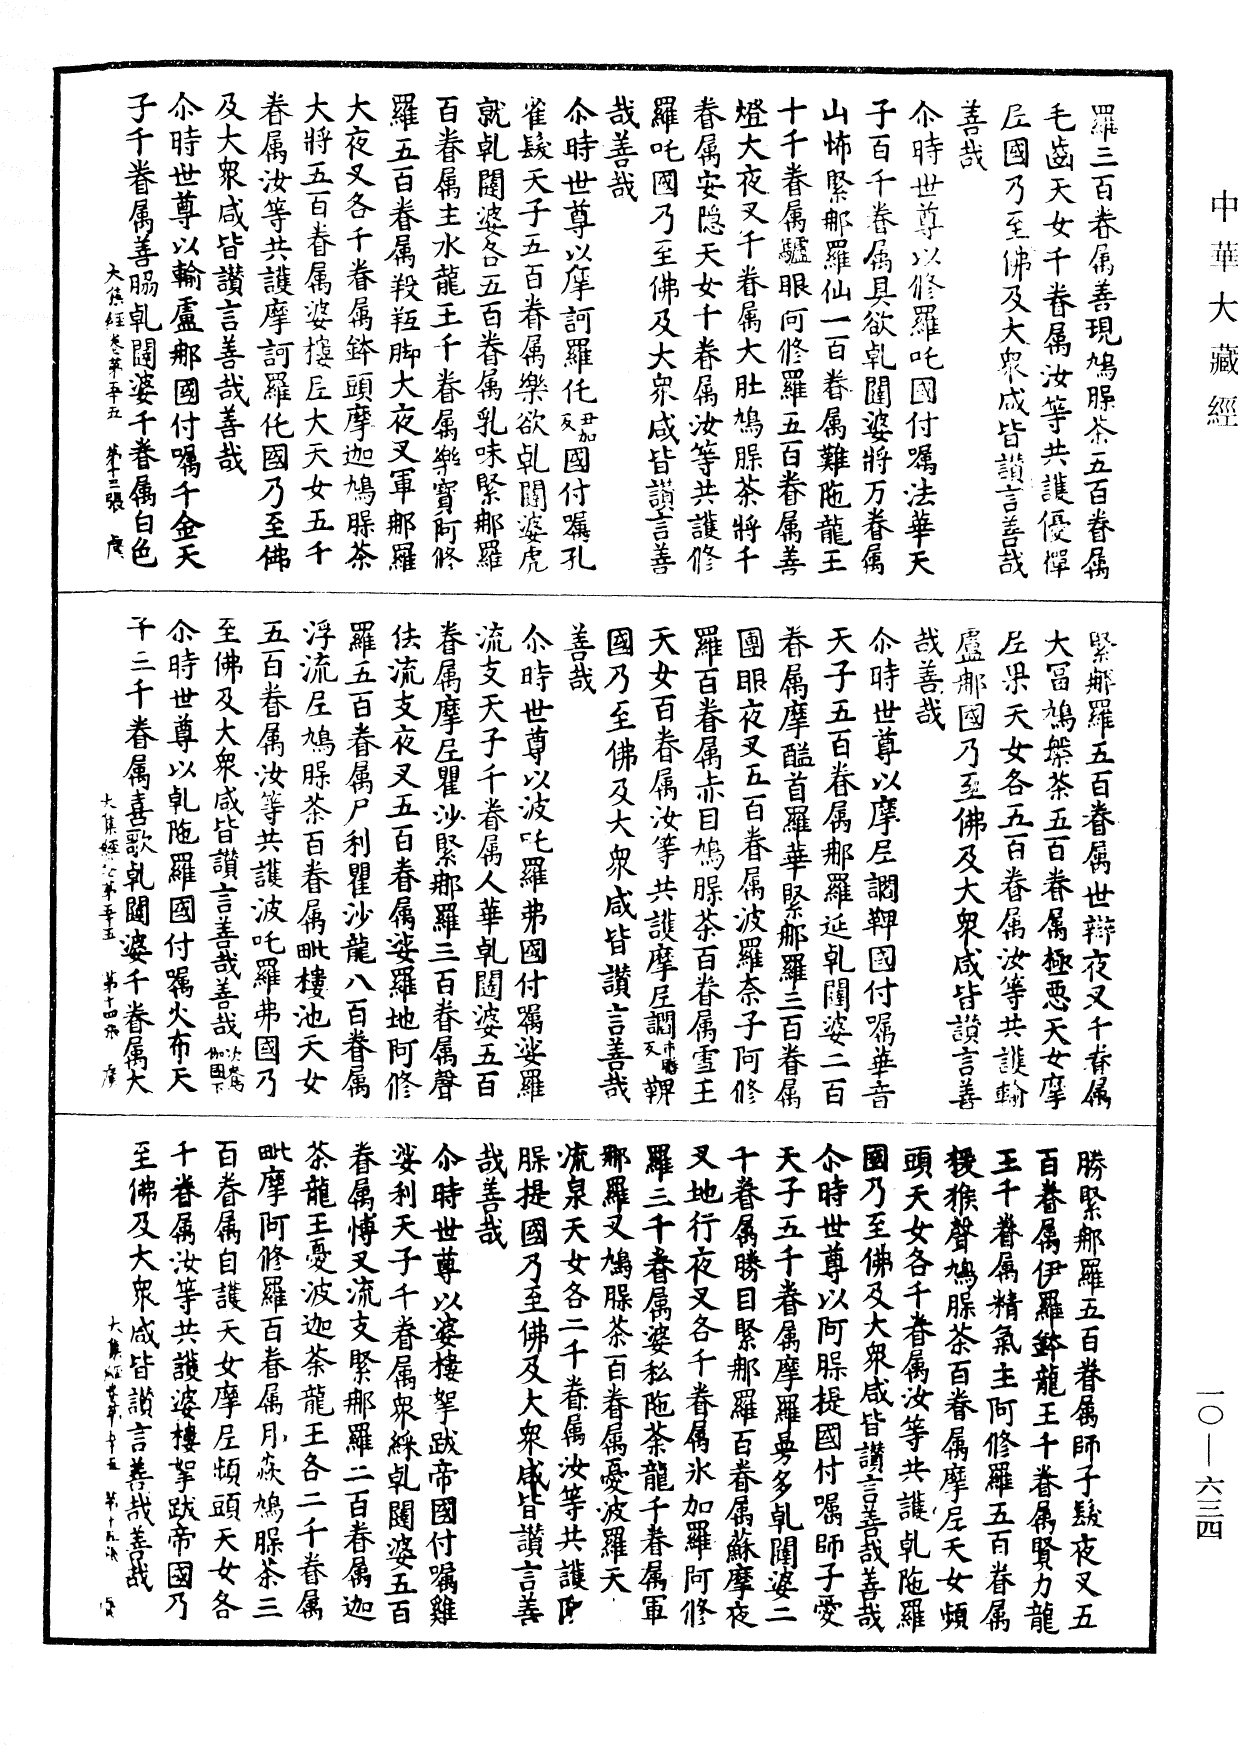 中華大藏經
羅三百眷属善現鳩膍茶五百眷属
毛齒天女千眷属汝等共護優樿
尼國乃至佛及大衆咸皆讃言善哉
善哉
尒時世尊以修羅吒國付嘱法華天
子百千眷属具欲乹闥婆將万眷属
山怖緊那羅仙一百眷属難陁龍王
十千眷属驢眼阿修羅五百眷属善
燈大夜叉千眷属大肚鳩膍茶將千
眷属安隐天女千眷属汝等共護修
羅吒國乃至佛及大衆咸皆讃言善
哉善哉
尒時世尊以摩訶羅侘尹加反國付嘱孔
雀髮天子五百眷属樂欲乹闥婆虎
就乹闥婆各五百眷属乳味緊那羅
百眷属主水龍王千眷属樂寳阿修
羅五百眷属羖羝脚大夜叉軍那羅
大夜叉各千眷属鉢頭摩迦鳩膍茶
大將五百眷属婆樓尼大天女五千
眷属汝等共護摩訶羅侘國乃至佛
及大衆咸皆讃言善哉善哉
尒時世尊以輸盧那國付嘱千金天
子千眷属善脇乹闥婆千眷属白色
大集經卷第五十五 第十三張 虞
緊那羅五百眷属世辯夜叉千眷属
大冨鳩槃茶五百眷属極惡天女摩
尼果天女各五百眷属汝等共護輸
盧那國乃至佛及大衆咸皆讃言善
哉善哉
尒時世尊以摩尼讇鞞國付嘱華音
天子五百眷属那羅延乹闥婆二百
眷属摩醯首羅華緊那羅三百眷属
團眼夜叉五百眷属波羅奈子阿修
羅百眷属赤目鳩膍茶百眷属雪王
天女百眷属汝等共護摩尼讇反鞞
國乃至佛及大衆咸皆讃言善哉
善哉
尒時世尊以波吒羅弗國付嘱娑羅
流支天子千眷属人華乹闥婆五百
眷属摩尼瞿沙緊那羅三百眷属聲
佉流支夜叉五百眷属娑羅地阿修
羅五百眷属尸利瞿沙龍八百眷属
浮流尼鳩膍茶百眷属毗樓池天女
五百眷属汝等共護波吒羅弗國乃
至佛及大衆咸皆讃言善哉善哉次鴦伽國下
尒時世尊以乹陁羅國付嘱火布天
子二千眷属喜歌乹闥婆千眷属大
大集經卷第五十五 第十四張 虞
勝緊那羅五百眷属師子髮夜叉五
百眷属伊羅鉢龍王千眷属賢力龍
王千眷属精氣主阿修羅五百眷属
猨猴聲鳩膍茶百眷属摩尼天女頻
頭天女各千眷属汝等共護乹陁羅
國乃至佛及大衆咸皆讃言善哉善哉
尒時世尊以阿膍提國付嘱師子愛
天子五千眷属摩羅曼多乹闥婆二
千眷属勝目緊那羅百眷属蘇摩夜
叉地行夜叉各千眷属氷加羅阿修
羅三千眷属婆私陁茶龍千眷属軍
那羅叉鳩膍茶百眷属憂波羅天
流泉天女各二千眷属汝等共護阿
膍提國乃至佛及大衆咸皆讃言善
哉善哉
尒時世尊以婆樓挐跋帝國付嘱雞
娑利天子千眷属衆綵乹闥婆五百
眷属愽叉流支緊那羅二百眷属迦
茶龍王憂波迦茶龍王各二千眷属
毗摩阿修羅百眷属月焱鳩膍茶三
百眷属自護天女摩尼頻頭天女各
千眷属汝等共護婆樓挐跋帝國乃
至佛及大衆咸皆讃言善哉善哉
大集經卷第五十五 第十五張 虞
一〇—六三四